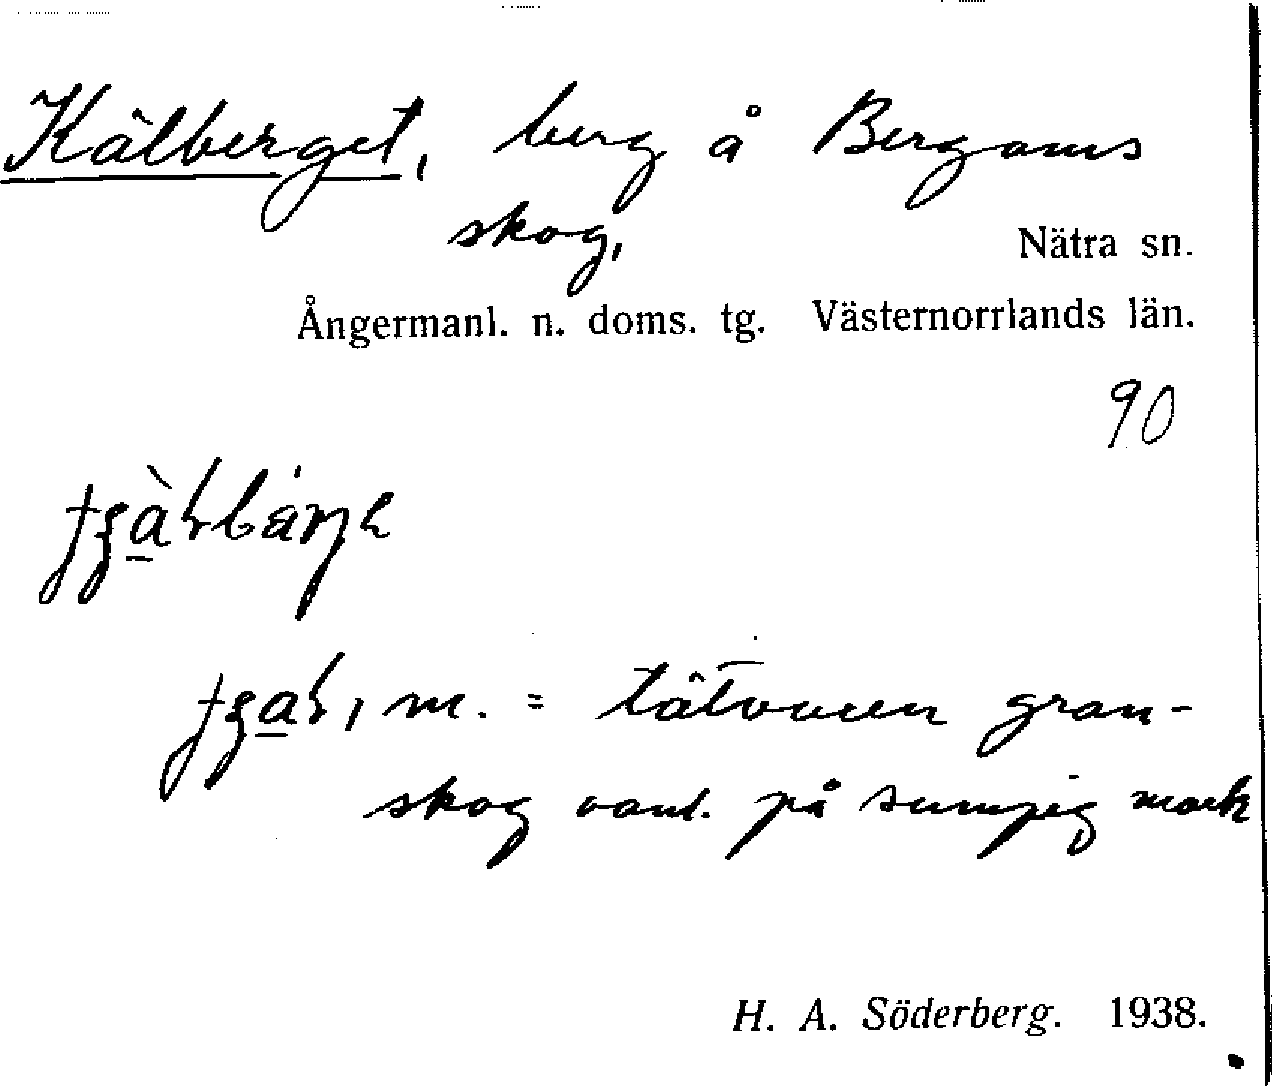 Kälberget, berg å Bergoms
skog,
Nätra sn.
Ångermanl. n. doms. tg. Västernorrlands län.
90
m. = tätvuxen gran-
skog vanl. på sumpig mark
H. A. Söderberg. 1938.